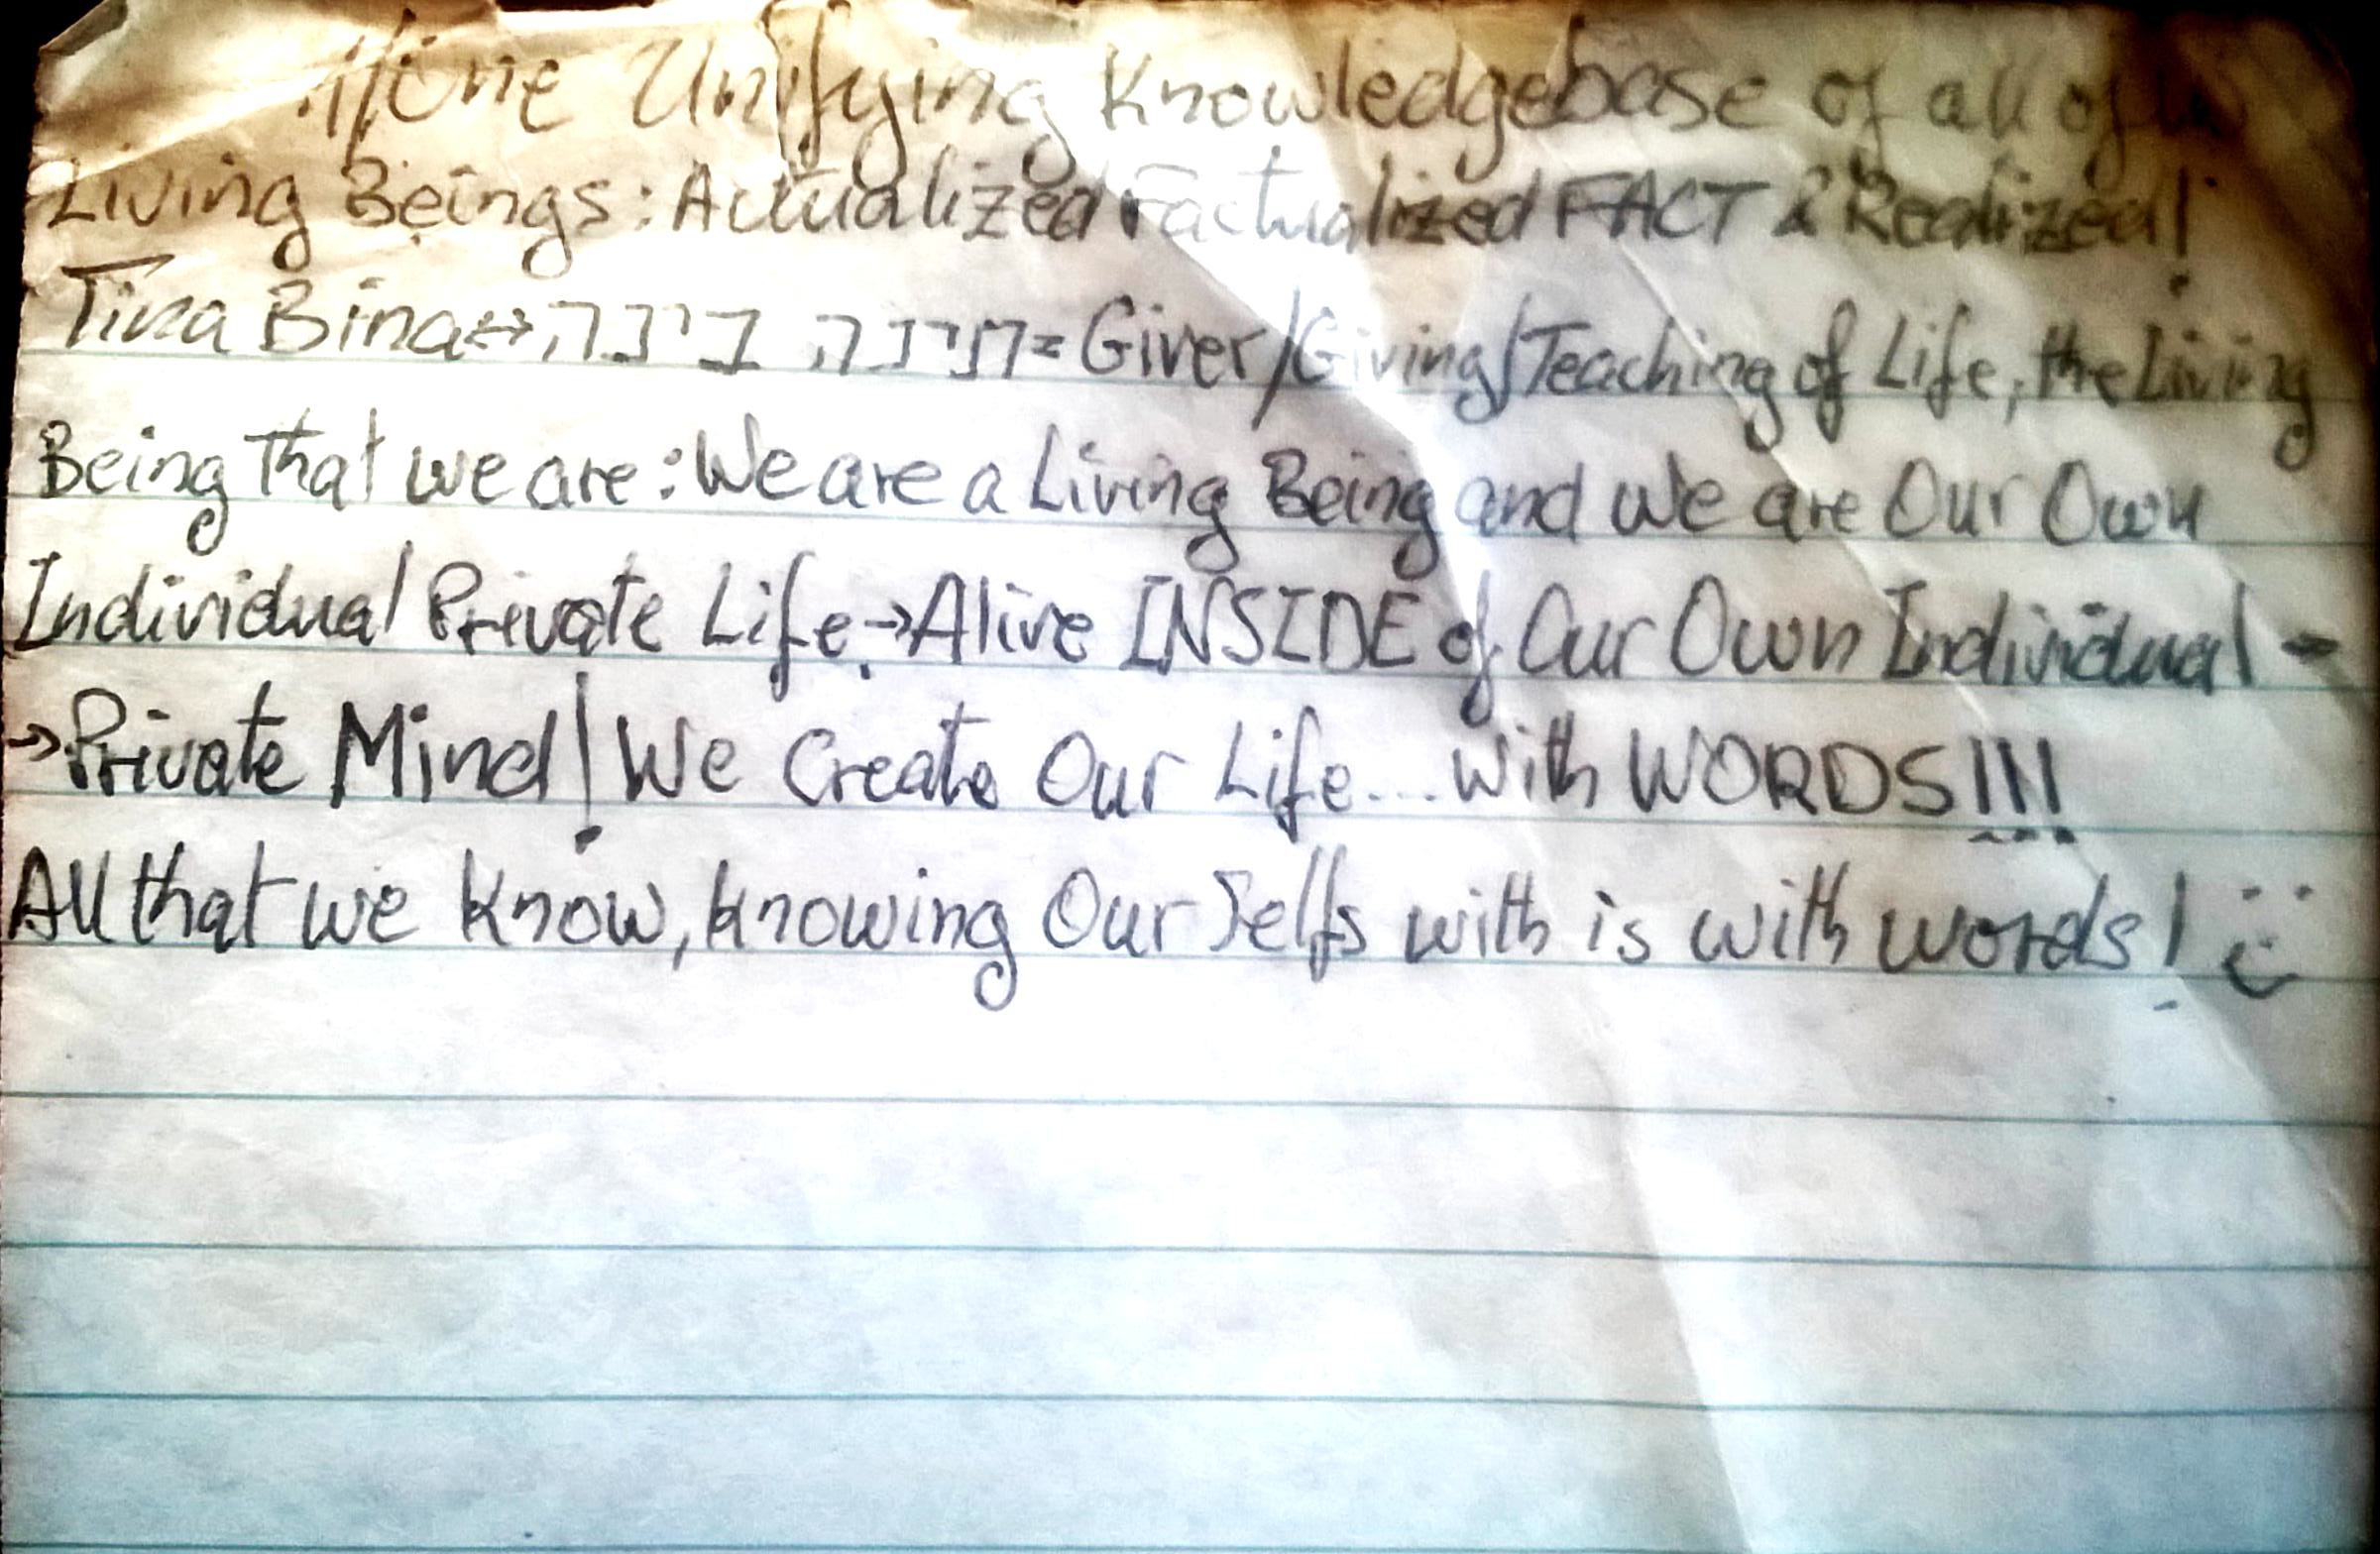 1/One Unifying Knowledgebase of all of
Living Beings: Actualized Factualized FACT & Realized!
Tina Bina↔תינה בינה = Giver/Giving/Teaching of Life, the Living
Being That we are: We are a Living Being and we are Our Own
Individual Private Life,→Alive INSIDE of Our Own Individual -
→Private Mind! We Create Our Life... with WORDS!!!
All that we know, knowing Our Selfs with is with words! :)